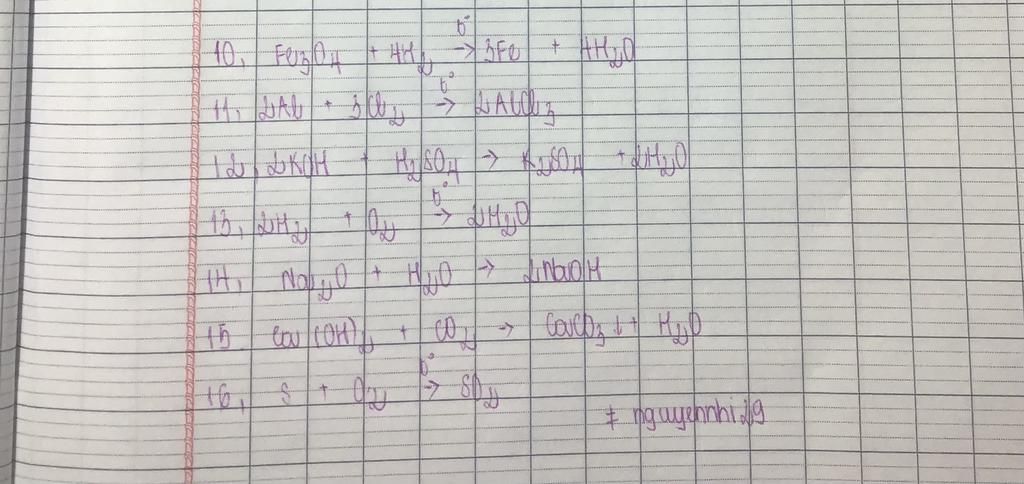 10, Fe₃O₄ + 4H₂ →t° 3Fe + 4H₂O
11, 2Al + 3Cl₂ →t° 2AlCl₃
12, 2KOH + H₂SO₄ → K₂SO₄ + 2H₂O
13, 2H₂ + O₂ →t° 2H₂O
14, Na₂O + H₂O → 2NaOH
15 Ca(OH)₂ + CO₂ → CaCO₃↓ + H₂O
16, S + O₂ →t° SO₂
# nguyennhi29